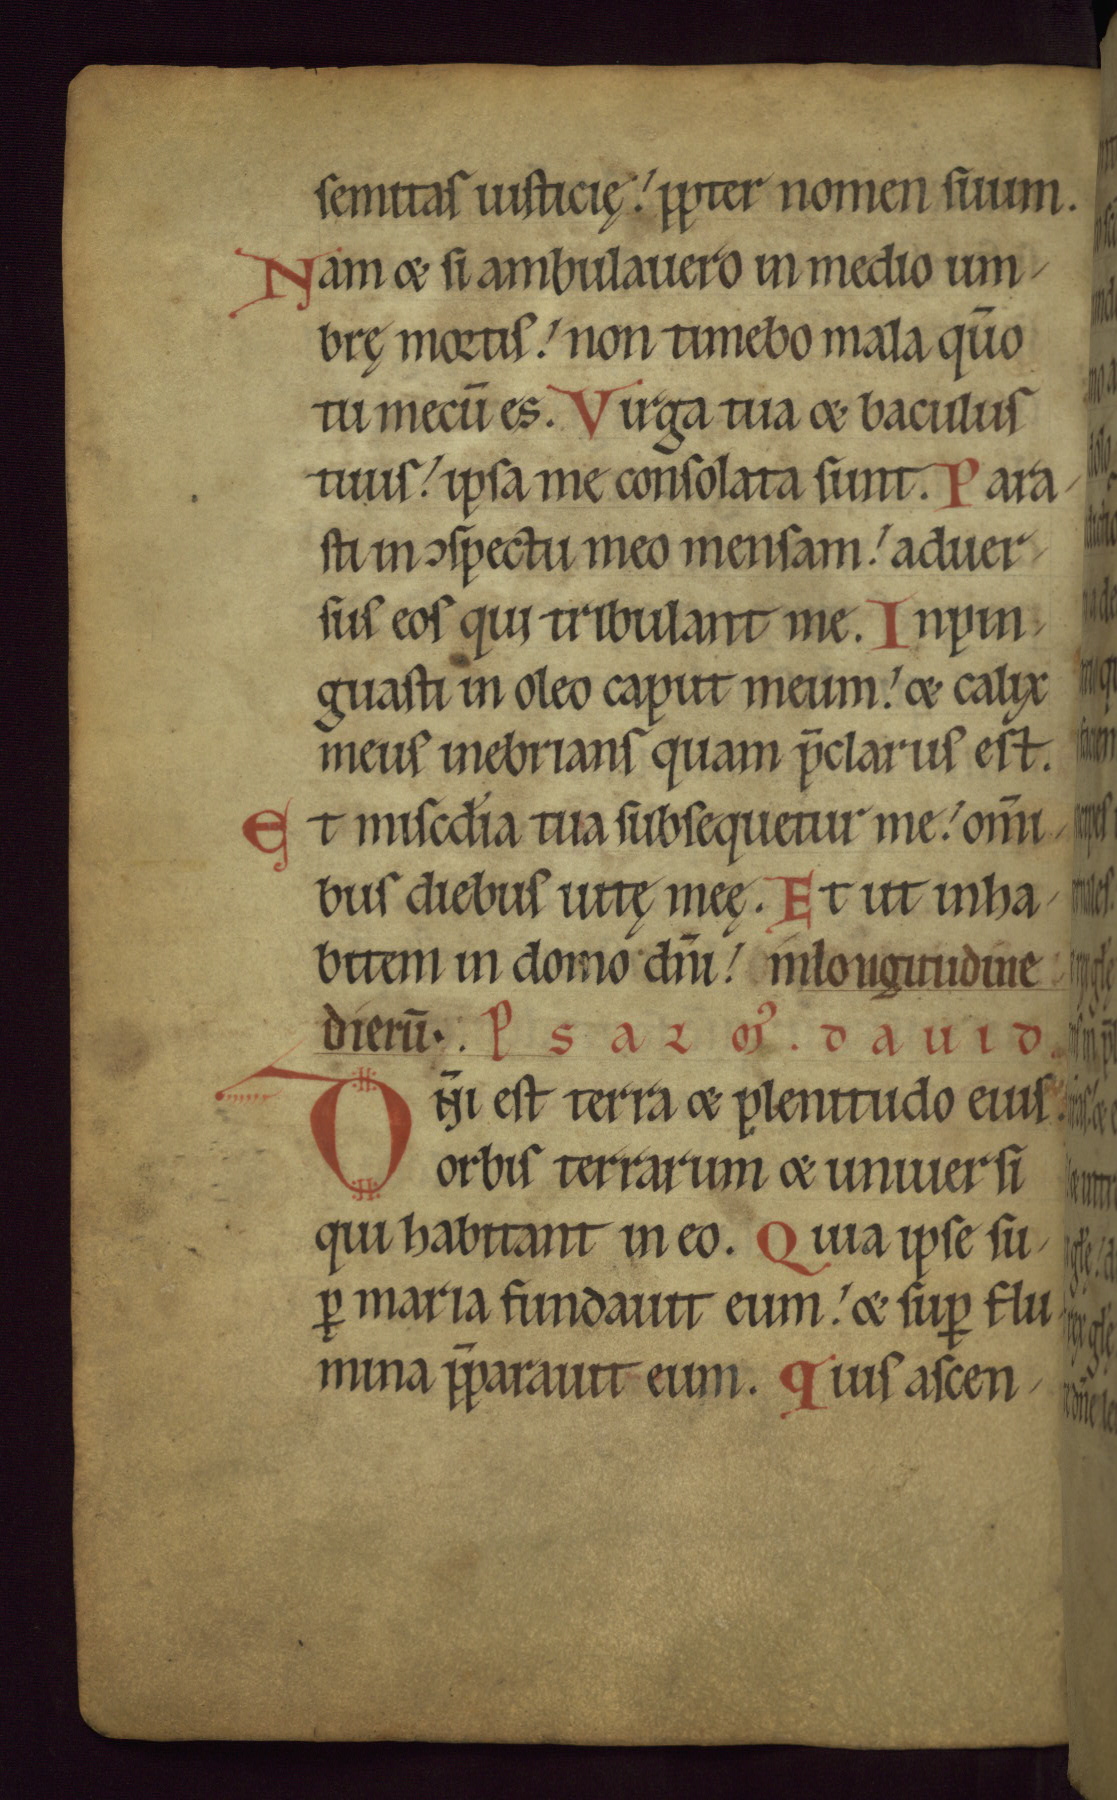 semitas iusticię! ꝓpter nomen suum.
Nam & si ambulauero in medio um-
brę mortis! non timebo mala qūo
tu mecū es. Virga tua & baculus
tuus! ipsa me consolata sunt. Para-
sti in ↄspectu meo mensam! aduer-
sus eos qui tribulant me. Inpin-
guasti in oleo caput meum! & calix
meus inebrians quam p̄clarus est.
Et misc̄dia tua subsequetur me! om̄i-
bus diebus uitę meę. Et ut inha-
bitem in domo dn̄i! inlongitudine
dierū. Psalm9. dauid.
Dn̄i est terra & plenitudo eius
orbis terrarum & uniuersi
qui habitant in eo. Quia ipse su-
ꝑ maria fundauit eum! & suꝑ flu-
mina p̄parauit eum. Quis ascen-